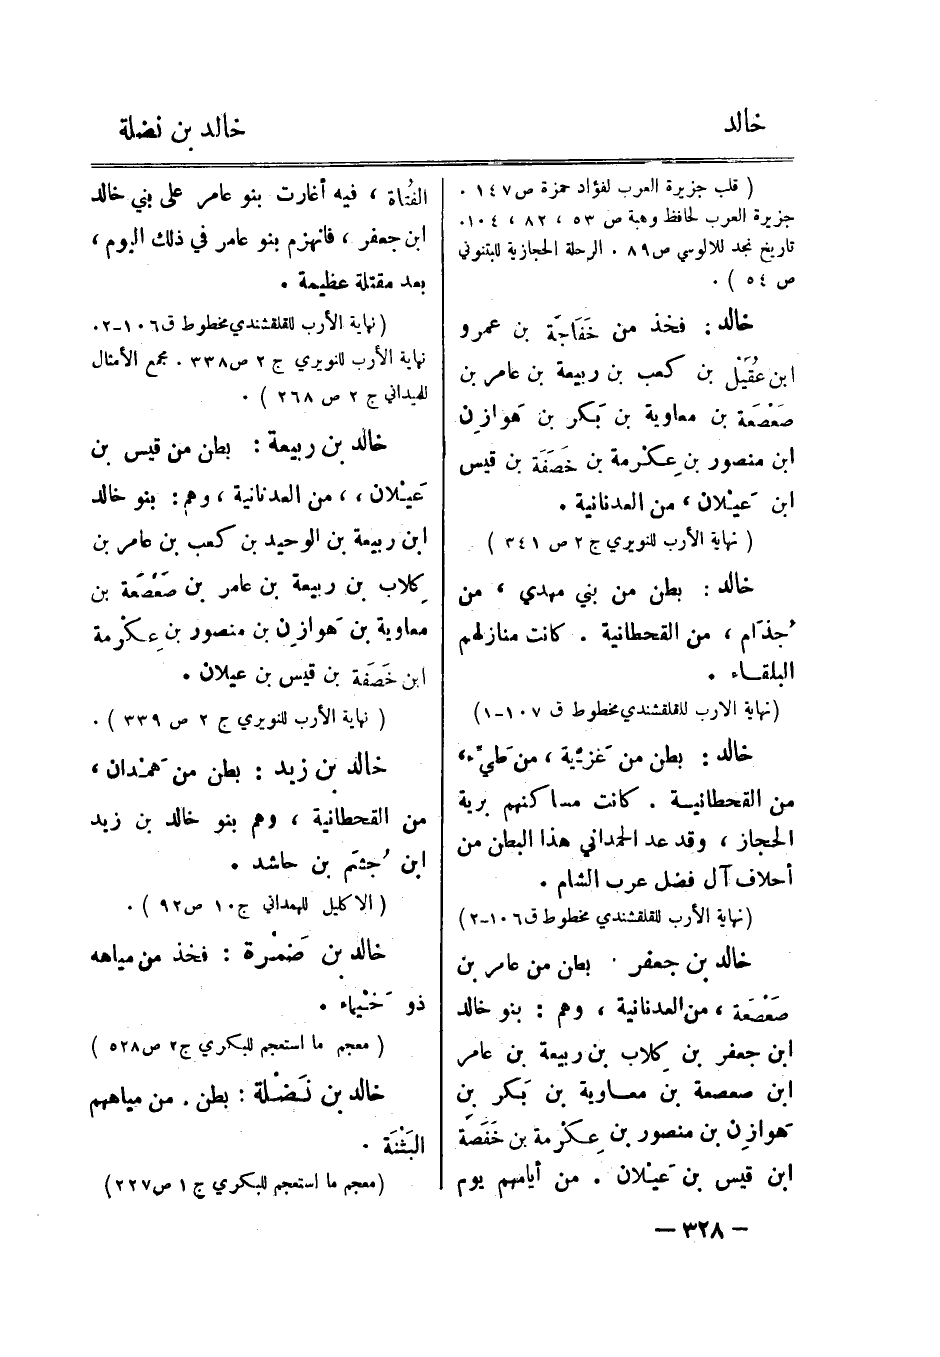 خالد
خالد بن نضلة
( قلب جزيرة العرب لفؤاد حمزة ص ١٤٧ .
جزيرة العرب لحافظ وهبة ص ٥٣ ، ٨٢ ، ١٠٤.
تاريخ نجد للالوسي ص ٨٩ . الرحلة الحجازية للبتنوني
ص ٥٤ ) .
خالد: فخذ من خَفَاجَة بن عمرو
ابن عُقَيْل بن كعب بن ربيعة بن عامر بن
صَعْصَعَة بن معاوية بن بَكر بن هَوازِن
ابن منصور بن عِكْرمة بن خَصَفَة بن قيس
ابن عَيْلان ، من العدنانية .
( نهاية الأرب للنويري ج ٢ ص ٣٤١ )
خالد : بطن من بني مهدي ، من
جُذَام ، من القحطانية . كانت منازلهم
البلقاء .
(نهاية الارب للقلقشندي مخطوط ق ١٠٧-١)
خالد : بطن من غَزِيَّة ، من طَيِّء،
من القحطانية . كانت مساكنهم برية
الحجاز ، وقد عد الحمداني هذا البطن من
أحلاف آل فضل عرب الشام .
(نهاية الأرب للقلقشندي مخطوط ق ١٠٦-٢)
خالد بن جعفر · بطن من عامر بن
صَعْصَعَة ، من العدنانية ، وهم : بنو خالد
ابن جعفر بن كلاب بن ربيعة بن عامر
ابن صعصعة بن معاوية بن بَكر بن
هَوازِن بن منصور بن عِكْرمة بن خَفَصَة
ابن قيس بن عَيْلان . من أيامهم يوم
الفُتَاة ، فيه أغارت بنو عامر على بني خالد
ابن جعفر ، فانهزم بنو عامر في ذلك اليوم ،
بعد مقتلة عظيمة .
(نهاية الأرب للقلقشندي مخطوط ق ١٠٦-٢.
نهاية الأرب للنويري ج ٢ ص ٣٣٨ . مجمع الأمثال
للميداني ج ٢ ص ٢٦٨ ) .
خالد بن ربيعة : بطن من قيس بن
عَيْلان ، ، من العدنانية ، وهم: بنو خالد
ابن ربيعة بن الوحيد بن كعب بن عامر بن
كِلاب بن ربيعة بن عامر بن صَعْصَعَة بن
معاوية بن هَوازِن بن منصور بن عِكْرمة
ابن خَصَفَة بن قيس بن عيلان .
( نهاية الأرب للنويري ج ٢ ص ٣٣٩ ) .
خالد بن زيد : بطن من هَمْدان ،
من القحطانية ، وهم بنو خالد بن زيد
ابن جُشَم بن حاشد .
( الاكليل للهمداني ج ١٠ ص ٩٢ ) .
خالد بن ضَمْرة : فخذ من مياهه
ذو خَيْماء .
( معجم ما استعجم للبكري ج ٢ ص ٥٢٨ )
خالد بن نَضْلَة : بطن . من مياههم
البَثْنَة .
(معجم ما استعجم للبكري ج ١ ص ٢٢٧)
— ٣٢٨ —